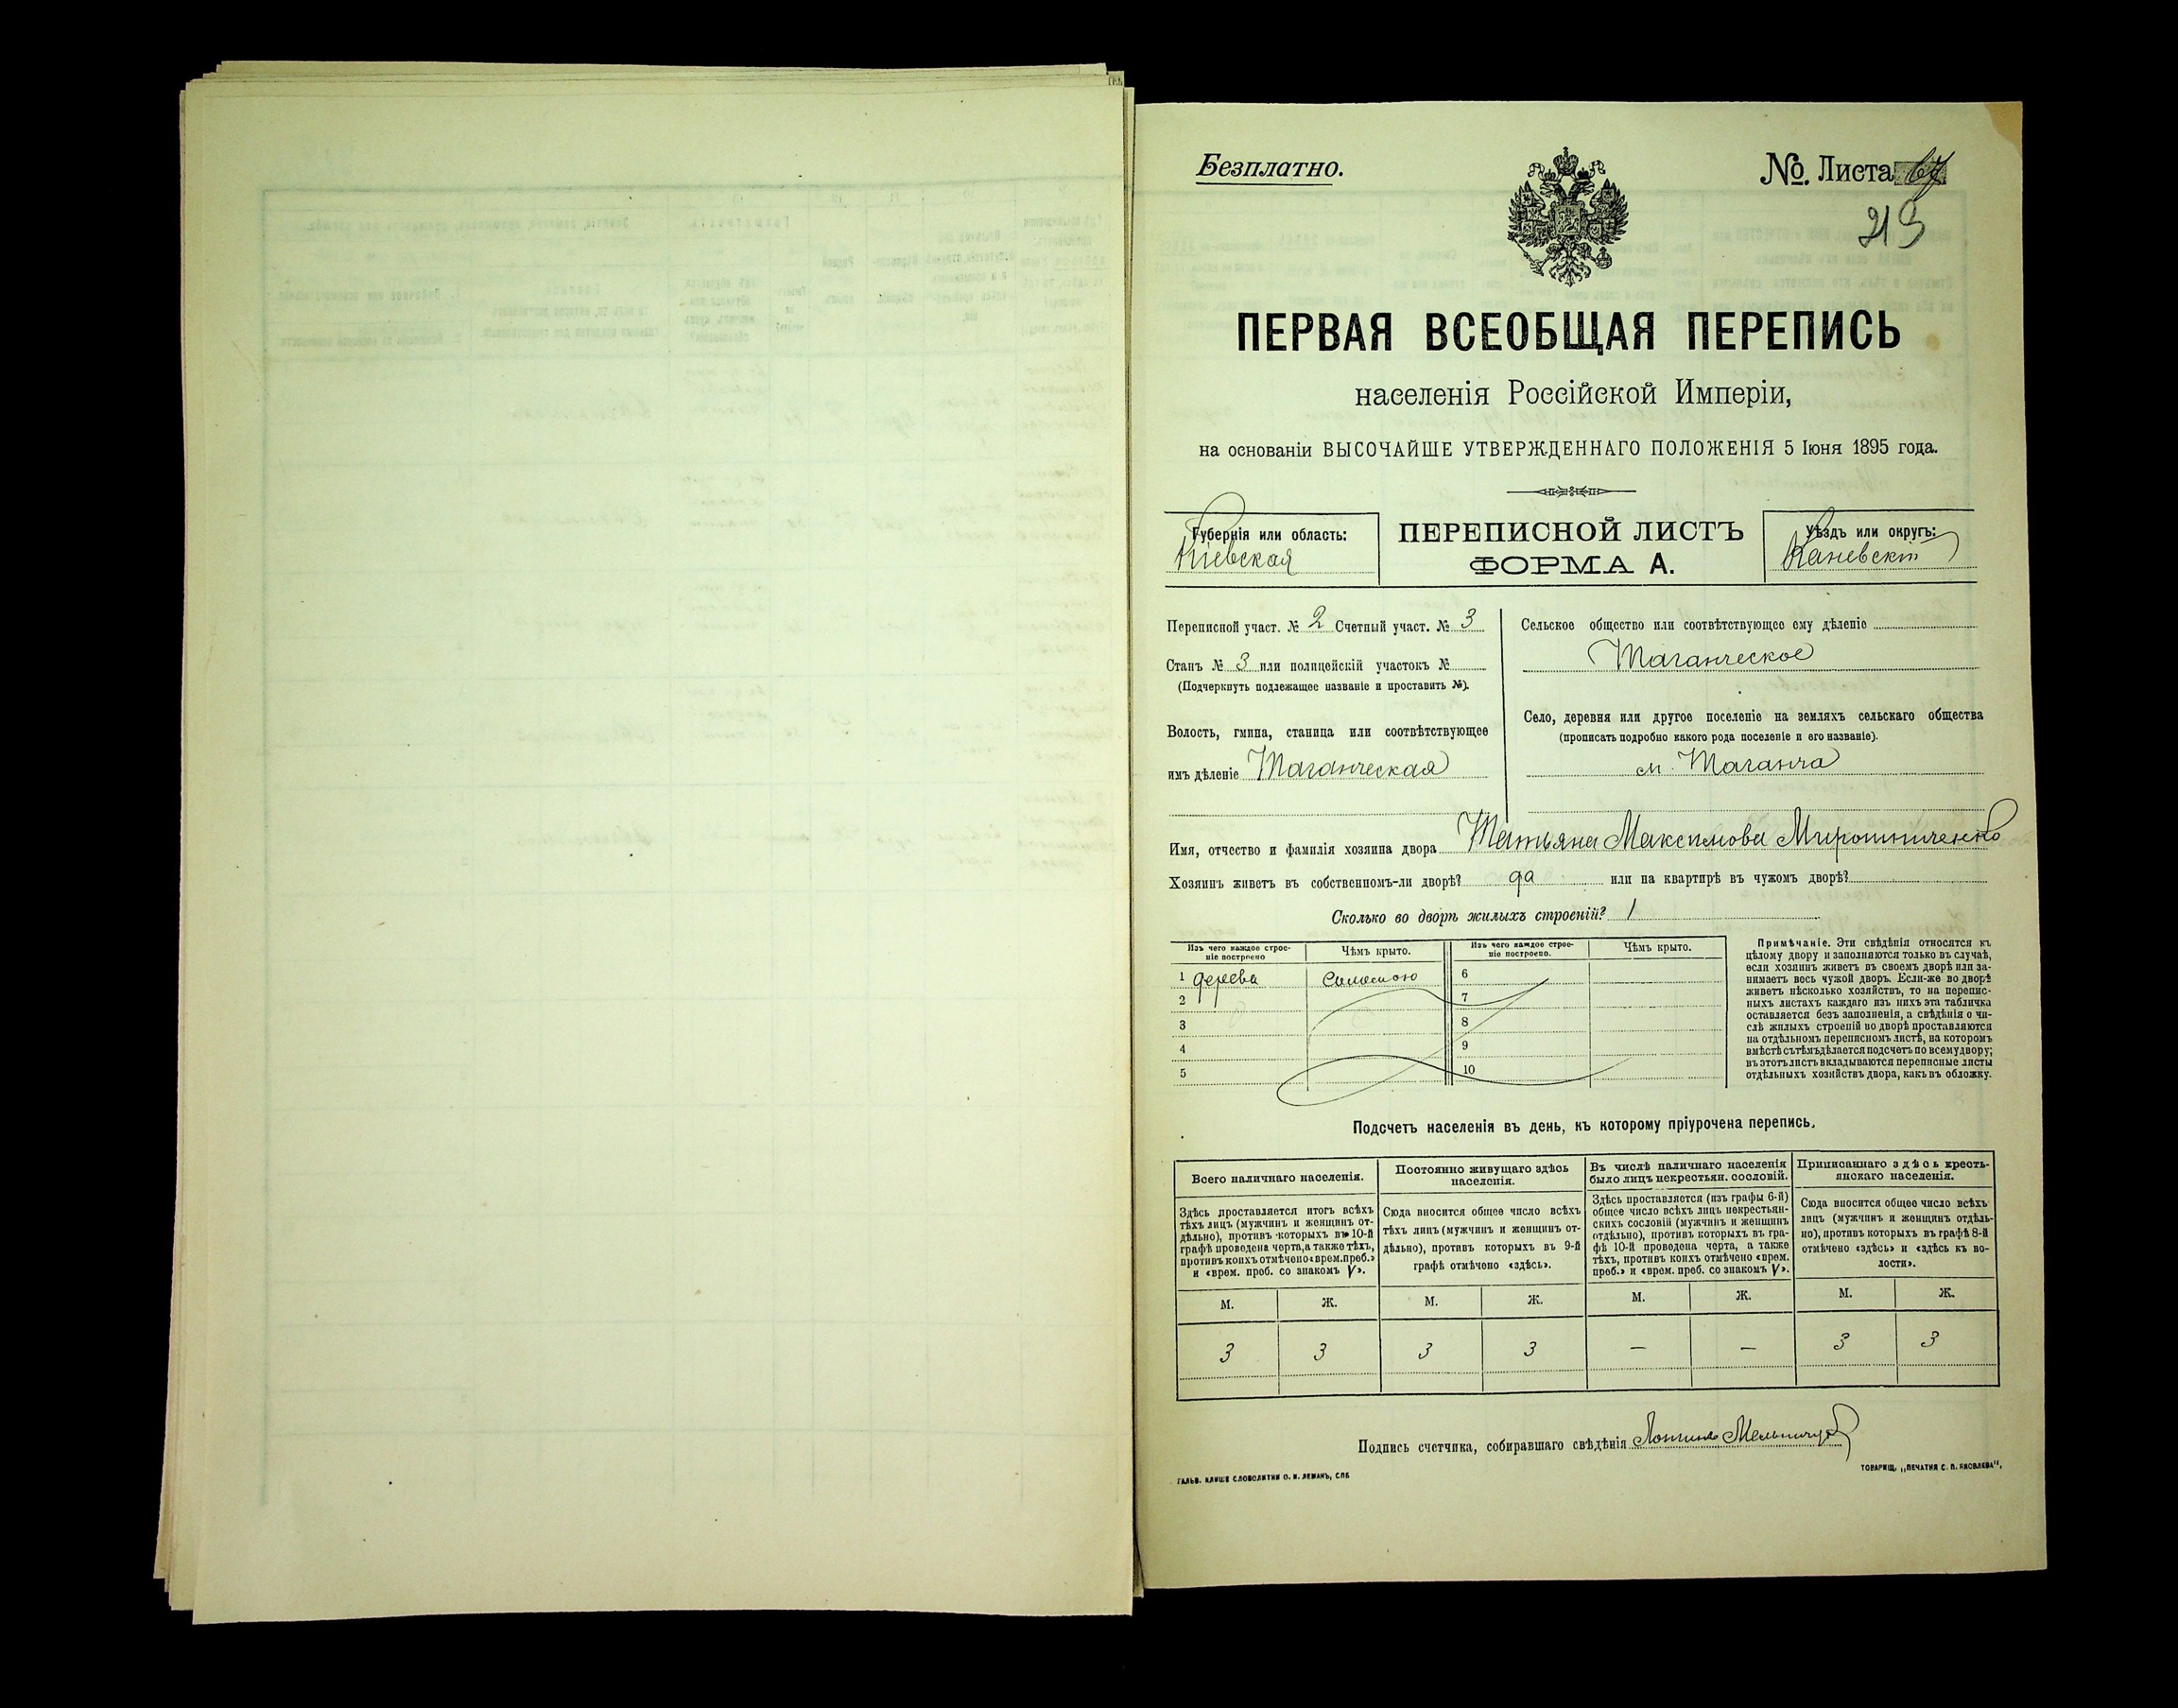 Безплатно.
№. Листа 67
213
ПЕРВАЯ ВСЕОБЩАЯ ПЕРЕПИСЬ
населенія Россійской Имперіи,
на основаніи ВЫСОЧАЙШЕ УТВЕРЖДЕННАГО ПОЛОЖЕНІЯ 5 Іюня 1895 года.
Губернія или область:
Кіевская
ПЕРЕПИСНОЙ ЛИСТЪ
ФОРМА А.
Уѣздъ или округъ:
Каневскій
Переписной участ. № 2 Счетный участ. № 3
Станъ № 3 или полицейскій участокъ №
(Подчеркнуть подлежащее названіе и проставить №).
Волость, гмина, станица или соотвѣтствующее
имъ дѣленіе Таганческая
Сельское общество или соотвѣтствующее ему дѣленіе
Таганческое
Село, деревня или другое поселеніе на земляхъ сельскаго общества
(прописать подробно какого рода поселеніе и его названіе).
м. Таганча
Имя, отчество и фамилія хозяина двора Татьяна Максимова Мирошниченко
Хозяинъ живетъ въ собственномъ-ли дворѣ? да или на квартирѣ въ чужомъ дворѣ?
Сколько во дворѣ жилыхъ строеній? 1
Изъ чего каждое строе-
ніе построено
Чѣмъ крыто.
Изъ чего каждое строе-
ніе построено.
Чѣмъ крыто.
1 дерева соломою 6
2 7
3 8
4 9
5 10
Примѣчаніе. Эти свѣдѣнія относятся къ
цѣлому двору и заполняются только въ случаѣ,
если хозяинъ живетъ въ своемъ дворѣ или за-
нимаетъ весь чужой дворъ. Если-же во дворѣ
живетъ нѣсколько хозяйствъ, то на перепис-
ныхъ листахъ каждаго изъ нихъ эта табличка
оставляется безъ заполненія, а свѣдѣнія о чи-
слѣ жилыхъ строеній во дворѣ проставляются
на отдѣльномъ переписномъ листѣ, на которомъ
вмѣстѣ съ тѣмъ дѣлается подсчетъ по всему двору;
въ этотъ листъ вкладываются переписные листы
отдѣльныхъ хозяйствъ двора, какъ въ обложку.
Подсчетъ населенія въ день, къ которому пріурочена перепись.
Всего наличнаго населенія.
Здѣсь проставляется итогъ всѣхъ
тѣхъ лицъ (мужчинъ и женщинъ от-
дѣльно), противъ которыхъ въ 10-й
графѣ проведена черта, а также тѣхъ,
противъ коихъ отмѣчено «врем. преб.»
и «врем. проб. со знакомъ V».
Постоянно живущаго здѣсь
населенія.
Сюда вносится общее число всѣхъ
тѣхъ лицъ (мужчинъ и женщинъ от-
дѣльно), противъ которыхъ въ 9-й
графѣ отмѣчено «здѣсь».
Въ числѣ наличнаго населенія
было лицъ некрестьян. сословій.
Здѣсь проставляется (изъ графы 6-й)
общее число всѣхъ лицъ некрестьян-
скихъ сословій (мужчинъ и женщинъ
отдѣльно), противъ которыхъ въ гра-
фѣ 10-й проведена черта, а также
тѣхъ, противъ коихъ отмѣчено «врем.
преб.» и «врем. проб. со знакомъ V».
Приписаннаго здѣсь кресть-
янскаго населенія.
Сюда вносится общее число всѣхъ
лицъ (мужчинъ и женщинъ отдѣль-
но), противъ которыхъ въ графѣ 8-й
отмѣчено «здѣсь» и «здѣсь къ во-
лости».
М. Ж. М. Ж. М. Ж. М. Ж.
3 3 3 3 — — 3 3
Подпись счетчика, собиравшаго свѣдѣнія Лонгинъ Мельничук
ГАЛЬВ. КЛИШЕ СЛОВОЛИТНИ О. И. ЛЕМАНЪ, СПБ
ТОВАРИЩ. „ПЕЧАТНЯ С. П. ЯКОВЛЕВА",